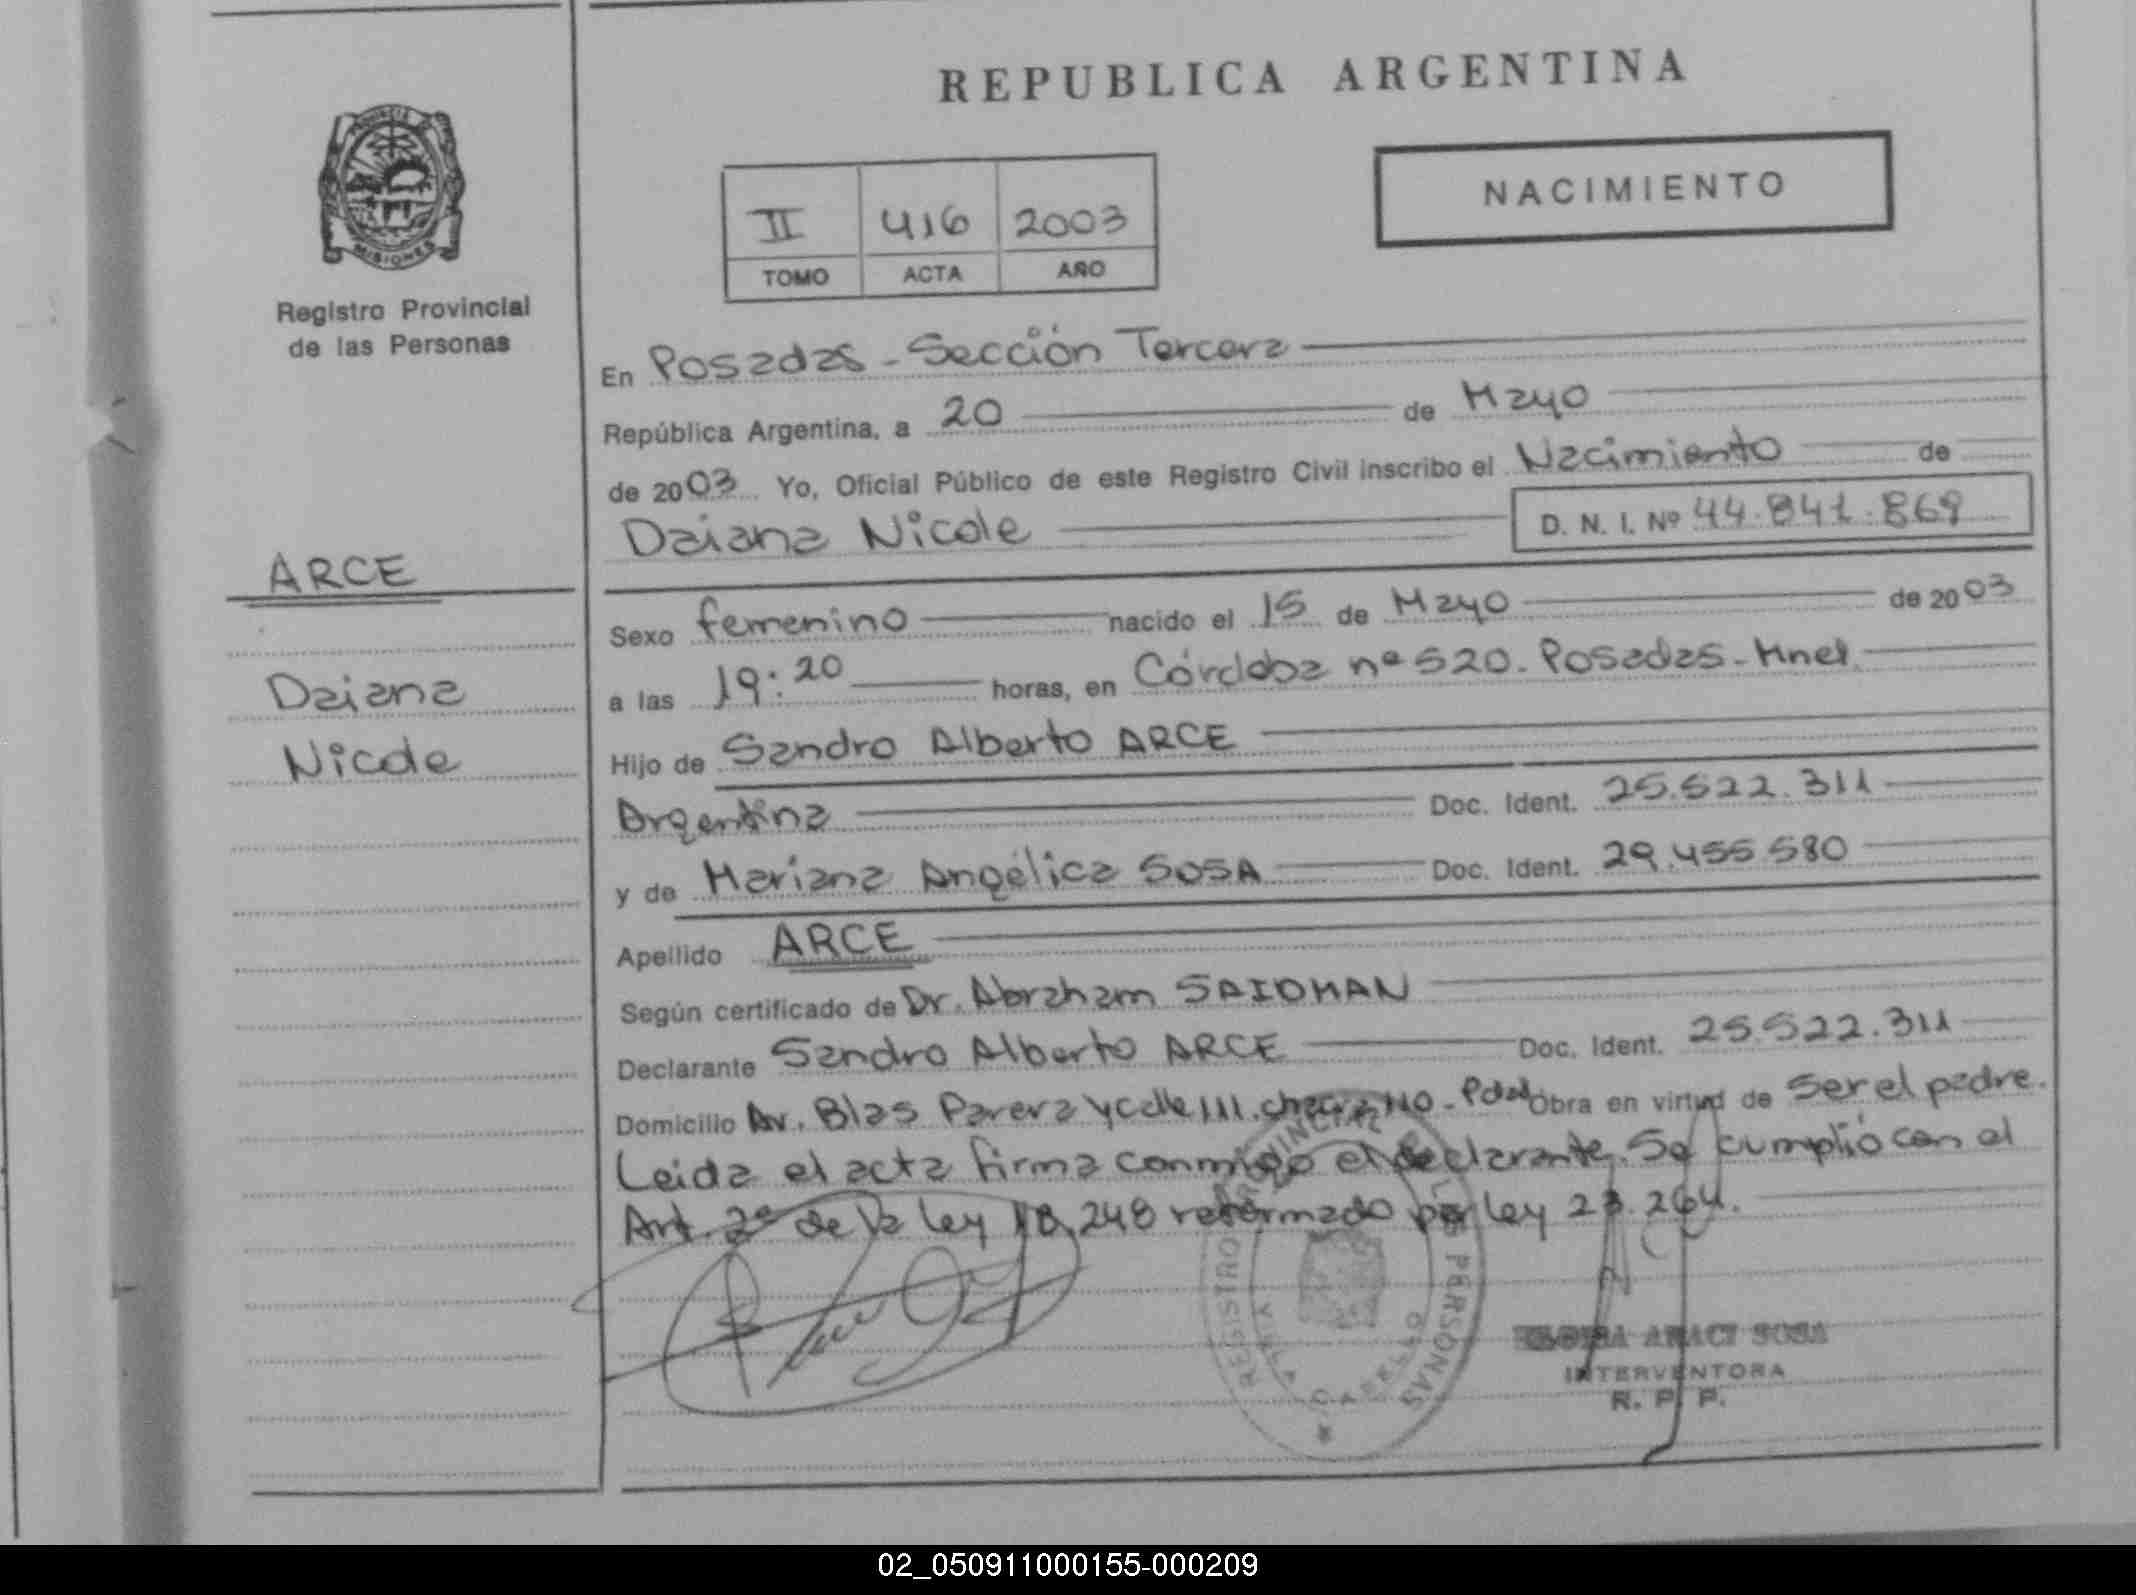 REPUBLICA ARGENTINA
NACIMIENTO
II 416 2003
TOMO ACTA AÑO
MISIONES
Registro Provincial
de las Personas
ARCE
Daiana
Nicole
En Posadas - Sección Tercera
República Argentina, a 20 de Mayo
de 2003 Yo, Oficial Público de este Registro Civil inscribo el Nacimiento de
Daiana Nicole D. N. I. Nº 44.841.869
Sexo femenino nacido el 15 de Mayo de 2003
a las 19:20 horas, en Córdoba nº 520. Posadas - Mnes
Hijo de Sandro Alberto ARCE
Argentina Doc. Ident. 25.522.311
y de Mariana Angélica SOSA Doc. Ident. 29.455.580
Apellido ARCE
Según certificado de Dr. Abraham SAIDMAN
Declarante Sandro Alberto ARCE Doc. Ident. 25.522.311
Domicilio Av. Blas Parera y calle 111. 110 - Obra en virtud de Ser el padre.
Leida el acta firma conmigo el declarante. Se cumplió con el
Art. 2º de la ley 18.248 reformado por ley 23.264.
REGISTRO PROVINCIAL DE LAS PERSONAS
ARACI SOSA
INTERVENTORA
R. P. P.
02_050911000155-000209